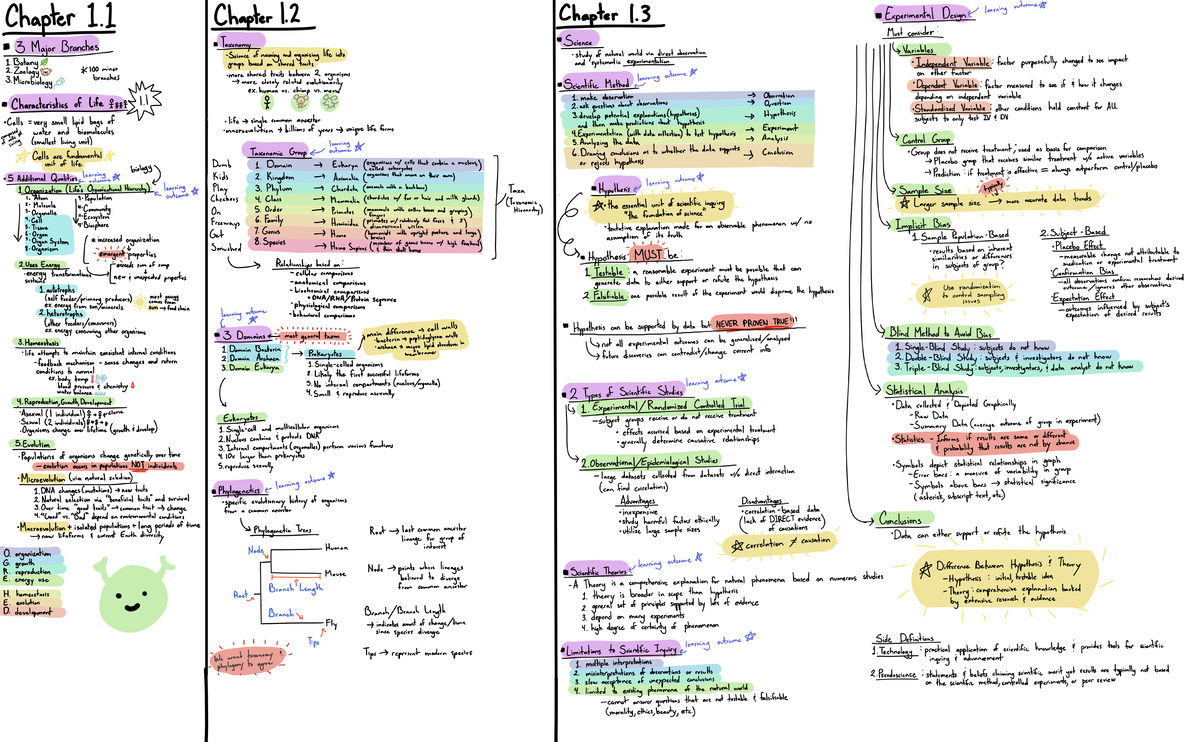 Chapter 1.1
3 Major Branches
1. Botany
2. Zoology
3. Microbiology
*100 minor
branches
Characteristics of Life
• Cells = very small lipid bags of
water and biomolecules
(smallest living unit)
Cells are fundamental
unit of life
biology
5 Additional Qualities
learning
outcome
1. Organization (Life's Organizational Hierarchy)
learning
outcome
1. Atom
2. Molecule
3. Organelle
4. Cell
5. Tissue
6. Organ
7. Organ System
8. Organism
9. Population
10. Community
11. Ecosystem
12. Biosphere
* increased organization
emergent properties
exceeds sum of comp
new & unexpected properties
2. Uses Energy
- energy transformations
sustains
1. autotrophs
(self feeder/primary producers)
ex. energy from sun/minerals
2. heterotrophs
(other feeders/consumers)
ex. energy consuming other organisms
most energy
comes from
sun → food chain
3. Homeostasis
• life attempts to maintain consistent internal conditions
- feedback mechanism - sense changes and return
conditions to normal
ex. body temp
blood pressure & chemistry
water balance
4. Reproduction, Growth, Development
• Asexual (1 individual)
• Sexual (2 individuals)
• Organisms change over lifetime (growth & develop)
5. Evolution
• Populations of organisms change genetically over time
- evolution occurs in populations NOT individuals
• Microevolution (via natural selection)
1. DNA changes (mutations) → new traits
2. Natural selection via "beneficial traits" and survival
3. Over time "good traits" → common trait → change
4. "Good" vs. "Bad" depend on environmental conditions
• Macroevolution + isolated populations + long periods of time
→ new lifeforms & current Earth diversity
O. organization
G. growth
R. reproduction
E. energy use
H. homeostasis
E. evolution
D. development
Chapter 1.2
Taxonomy
• Science of naming and organizing life into
groups based on shared traits
• more shared traits between 2 organisms
→ more closely related evolutionarily
ex. human vs. chimp vs. mouse
• life → single common ancestor
• macroevolution → billions of years → unique life forms
learning outcome
Taxonomic Group
Dumb 1. Domain → Eukarya (organisms w/ cells that contain a nucleus, called eukaryotes)
Kids 2. Kingdom → Animalia (organisms that move on their own)
Play 3. Phylum → Chordata (animals with a backbone)
Checkers 4. Class → Mammalia (chordates w/ fur or hair and milk glands)
On 5. Order → Primates (mammals with collar bones and grasping fingers)
Freeways 6. Family → Hominidae (primates w/ relatively flat faces & 3 dimensional vision)
Get 7. Genus → Homo (hominids with upright posture and large brains)
Smushed 8. Species → Homo Sapiens (member of genus homo w/ high forehead & thin skull bones)
Taxa
(Taxonomic
Hierarchy)
Relationships based on:
- cellular comparisons
- anatomical comparisons
- biochemical comparisons
• DNA/RNA/Protein sequence
- physiological comparisons
- behavioral comparisons
learning
outcome
3 Domains
most general taxon
1. Domain Bacteria
2. Domain Archaea
3. Domain Eukarya
Prokaryotes
1. Single-celled organisms
2. Likely the first successful lifeforms
3. No internal compartments (nucleus/organelle)
4. Small & reproduce asexually
main difference → cell walls
- bacteria → peptidoglycan walls
- archaea → unique lipid structure in
membranes
Eukaryotes
1. Single-cell and multicellular organisms
2. Nucleus contains & protects DNA
3. Internal compartments (organelles) perform various functions
4. 10x larger than prokaryotes
5. reproduce sexually
Phylogenetics
learning outcome
• specific evolutionary history of organisms
from a common ancestor
Phylogenetic Trees
Node
Human
Mouse
Branch Length
Root
Branch
Fly
Tips
We want taxonomy &
phylogeny to agree
Root → last common ancestor
lineage for group of
interest
Node → points when lineages
believed to diverge
from common ancestor
Branch/Branch Length
→ indicates amount of change/time
since species diverge
Tips → represent modern species
Chapter 1.3
Science
• study of natural world via direct observation
and systematic experimentation
Scientific Method
learning outcome
1. make observation → Observation
2. ask questions about observations → Question
3. develop potential explanations (hypotheses) → Hypothesis
and then make predictions about hypothesis
4. Experimentation (with data collection) to test hypothesis → Experiment
5. Analyzing the data → Analysis
6. Drawing conclusions as to whether the data supports → Conclusion
or rejects hypothesis
Hypothesis
learning outcome
the essential unit of scientific inquiry
"the foundation of science"
• tentative explanation made for an observable phenomenon w/ no
assumption of its truth
Hypothesis MUST be:
1. Testable : a reasonable experiment must be possible that can
generate data to either support or refute the hypothesis
2. Falsifiable : one possible result of the experiment would disprove the hypothesis
Hypothesis can be supported by data but NEVER PROVEN TRUE!!!
not all experimental outcomes can be generalized/analyzed
future discoveries can contradict/change current info
2 Types of Scientific Studies
learning outcome
1. Experimental/Randomized Controlled Trial
- subject groups receive or do not receive treatment
• effects assessed based on experimental treatment
• generally determine causative relationships
2. Observational/Epidemiological Studies
- large datasets collected from datasets w/o direct interaction
(can find correlations)
Advantages
• inexpensive
• study harmful factors ethically
• utilize large sample sizes
Disadvantages
• correlation-based data
(lack of DIRECT evidence)
of causations
correlation ≠ causation
Scientific Theories
learning outcome
- A Theory is a comprehensive explanation for natural phenomena based on numerous studies
1. theory is broader in scope than hypothesis
2. general set of principles supported by lots of evidence
3. depend on many experiments
4. high degree of certainty of phenomenon
Limitations to Scientific Inquiry
learning outcome
1. multiple interpretations
2. misinterpretations of observations or results
3. slow acceptance of unexpected conclusions
4. limited to existing phenomena of the natural world
- cannot answer questions that are not testable & falsifiable
(morality, ethics, beauty, etc.)
Experimental Design
learning outcome
Must consider:
Variables
• Independent Variable: factor purposefully changed to see impact
on other factor
• Dependent Variable: factor measured to see if & how it changes
depending on independent variable
• Standardized Variable: other conditions held constant for ALL
subjects to only test IV & DV
Control Group
• Group does not receive treatment; used as basis for comparison
→ Placebo group that receives similar treatment w/o active variables
→ Prediction: if treatment is effective == always outperform control/placebo
Sample Size
typically
Larger sample size → more accurate data trends
Implicit Bias
1. Sample Population-Based
- results based on inherent
similarities or differences
in subjects of group?
Use randomization
to control sampling
issues
2. Subject-Based
• Placebo Effect
- measurable change not attributable to
medication or experimental treatment
• Confirmation Bias
- all observations confirm researchers desired
outcome/ignores other observations
• Expectation Effect
- outcomes influenced by subject's
expectation of desired results
Blind Method to Avoid Bias
1. Single-Blind Study: subjects do not know
2. Double-Blind Study: subjects & investigators do not know
3. Triple-Blind Study: subjects, investigators, & data analyst do not know
Statistical Analysis
• Data collected & Depicted Graphically
- Raw Data
- Summary Data (average outcome of group in experiment)
• Statistics - Informs if results are same or different
& probability that results are not by chance
• Symbols depict statistical relationships in graph
- Error bars: a measure of variability in group
- Symbols above bars → statistical significance
(asterisks, subscript text, etc)
Conclusions
• Data can either support or refute the hypothesis
Difference Between Hypothesis & Theory
- Hypothesis: initial, testable idea
- Theory: comprehensive explanation backed
by extensive research & evidence
Side Definitions
1. Technology : practical application of scientific knowledge & provides tools for scientific
inquiry & advancement
2. Pseudoscience : statements & beliefs claiming scientific merit yet results are typically not based
on the scientific method, controlled experiments, or peer review